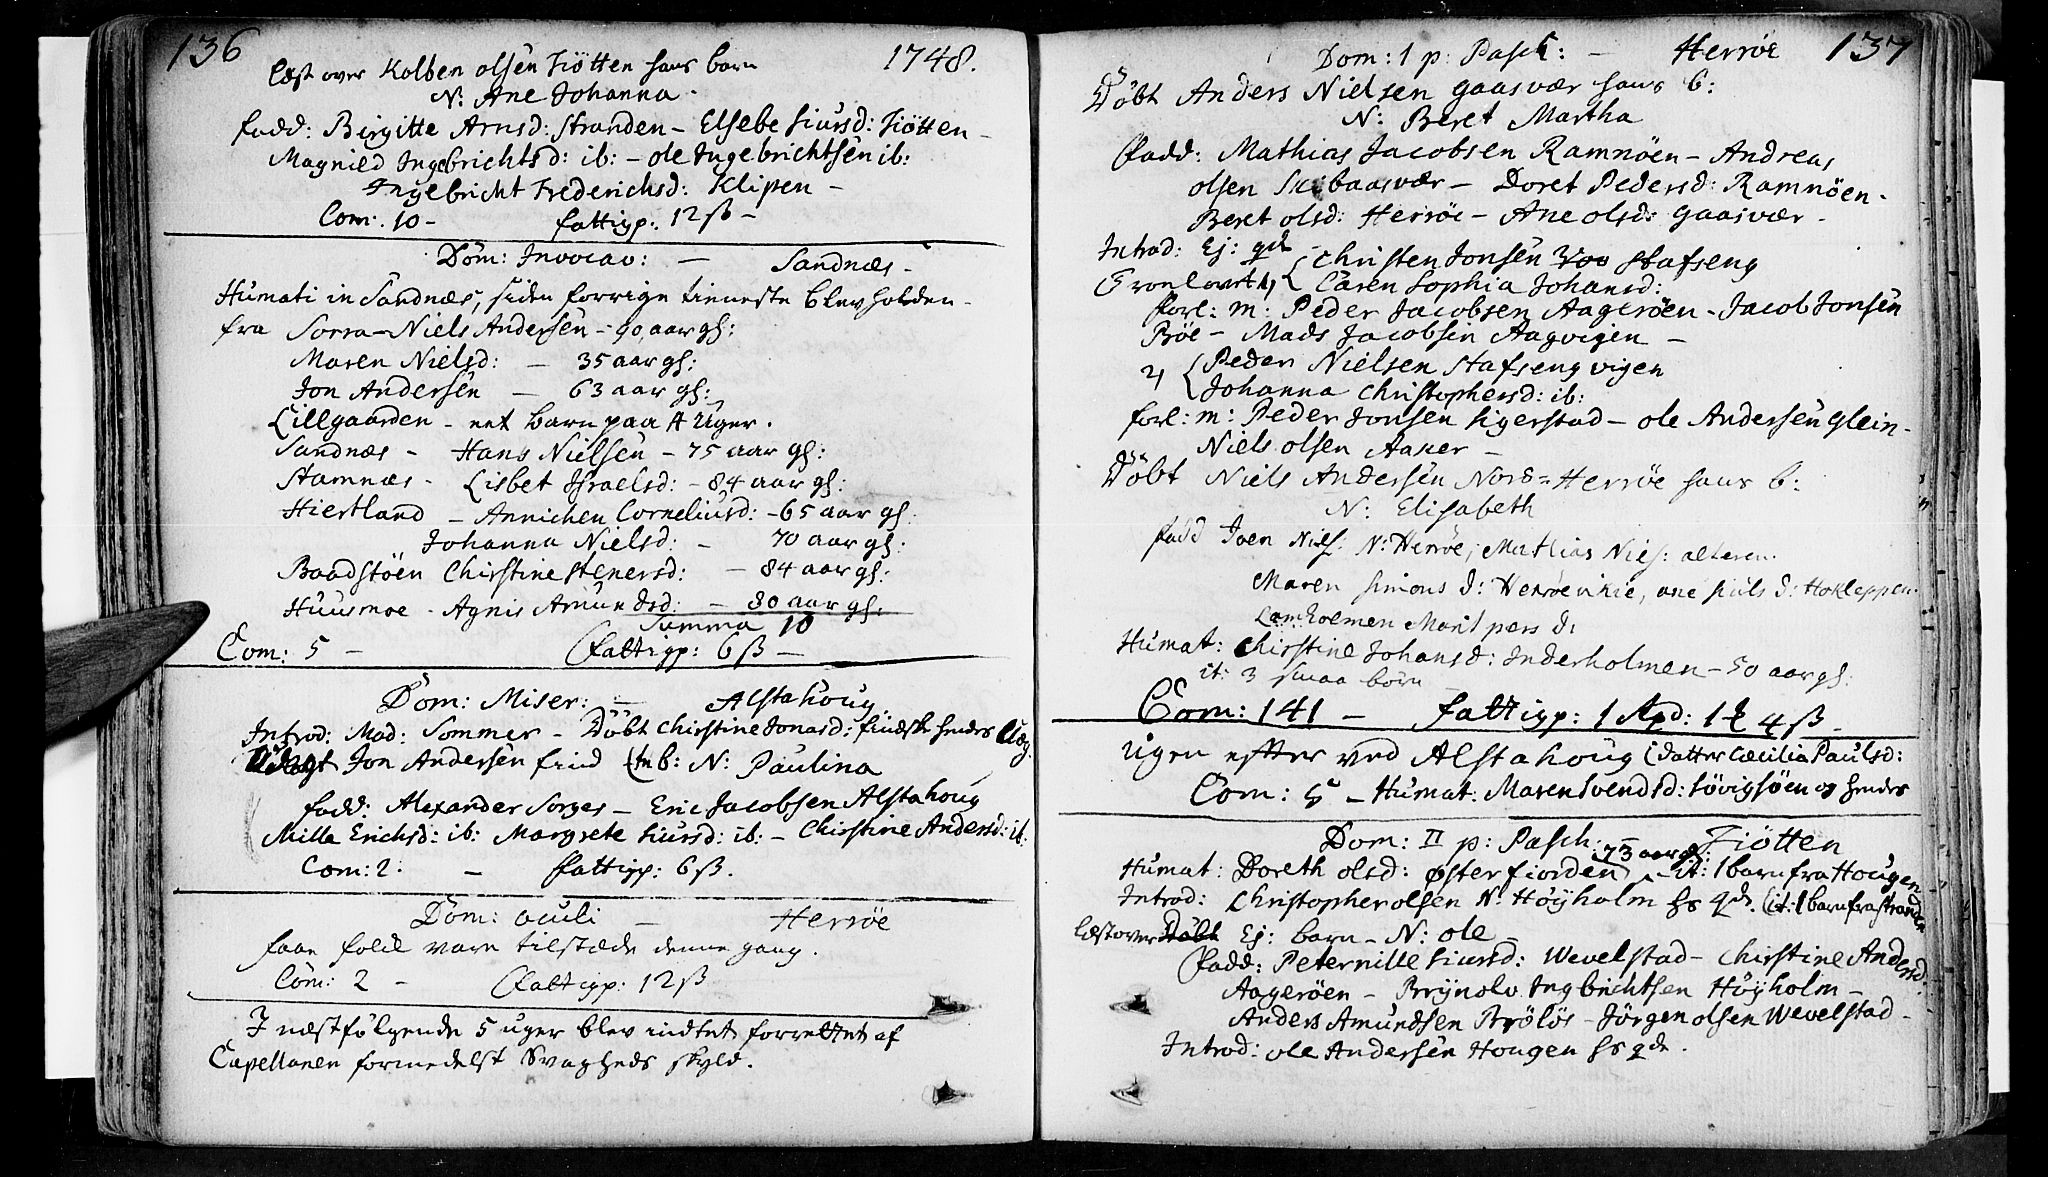 136
1748.
læst over Kolben olsen Tiötten hans barn
N: Ane Johanna.
fadd: Birgitte Arnsd: Stranden – Elsebe Siursd: Tiötten –
Magnild Ingebrichtsd: ib: – ole Ingebrichtsen ib:
Ingebricht Frederichsd: Klipen –
Com: 10 – fattigp: 12 ß –
Dom: Invocav: – Sandnæs –
Humati in Sandnæs, siden forrige tieneste blev holden –
fra Sorra – Niels Andersen – 90 aar gl:
Maren Nielsd: – 35 aar gl:
Jon Andersen – 63 aar gl:
Lillgaarden – eet barn paa 4 Uger.
Sandnæs – Hans Nielsen – 75 aar gl:
Stamnæs – Lisbet Israelsd: – 84 aar gl:
Hiertland – Annichen Corneliusd: – 65 aar gl:
Johanna Nielsd: – 70 aar gl:
Baadstöen Christine Stenersd: – 84 aar gl:
Huusmoe – Agnis Amundsd: – 80 aar gl:
Summa 10
Com: 5 – fattigp: 6 ß –
Dom: Miser: – Alstahoug.
Introd: Mad: Sommer – Döbt Christine Jonasd: findske hendes
Jon Andersen find b: N: Paulina
fadd: Alexander Sorges – Eric Jacobsen Alstahoug
Mille Erichsd: ib: Margrete Siursd: ib: – Christine Andersd: ib:
Com: 2. – fattigp: 6 ß.
Dom: oculi – Herröe
faae folck vare tilstæde denne gang.
Com: 2 – fattigp: 12 ß
I næstfölgende 5 uger blev indtet forrettet af
Capellanen formedelst Svagheds skyld.
Dom: 1 p: Pasch: – Herröe 137
Döbt Anders Nielsen gaasvær hans b:
N: Beret Martha
fadd: Mathias Jacobsen Ramnöen – Andreas
olsen Skibaasvær – Doret Pedersd: Ramnöen –
Beret olsd: Herröe – Ane olsd: gaasvær –
Introd: Ej: qde –
Trolov: 1, { Christen Jonsen Stafseng
Caren Sophia Johansd:
forl: m: Peder Jacobsen Aageröen – Jacob Jonsen
Böe – Mads Jacobsen Aagvigen –
2, { Peder Nielsen Stafseng vigen
Johanna Christophersd: ib:
forl: m: Peder Jonsen Sigerstad – ole Andersen glein –
Niels olsen Aaker –
Döbt Niels Andersen Nord-Herröe hans b:
N: Elisabeth
fadd Joen Niels: N: Herröe, Mathias Niels:
Maren Simons d: Herröevikie, ane d: Hokleppen.
Lamholmen Marit pers d:
Humat: Christine Johansd: Inderholmen – 50 aar gl:
it: 3 smaa börn –
Com: 141 – fattigp: 4 ß –
Ugen efter ved Alstahoug (datter Cæcilia Paulsd:
Com: 5 – Humat: Maren Svendsd: Sövigsöen og hendes
Dom: II p: Pasch: – Tiötten
Humat: Doreth olsd: østerfiorden 73 aar gl: – it: 1 barn fra Hougen
Introd: Christopher olsen N: Höyholm hs qde. (it: 1 barn fra stranden
læst over Döbt Ej: barn – N: ole –
fadd: Peternille Siursd: Wevelstad – Christine Andersd:
Aageröen – Brÿnolv Ingbrichtsen Höyholm –
Anders Amundsen Brölös – Jörgen olsen Wevelstad –
Introd: ole Andersen Hougen hs qde.